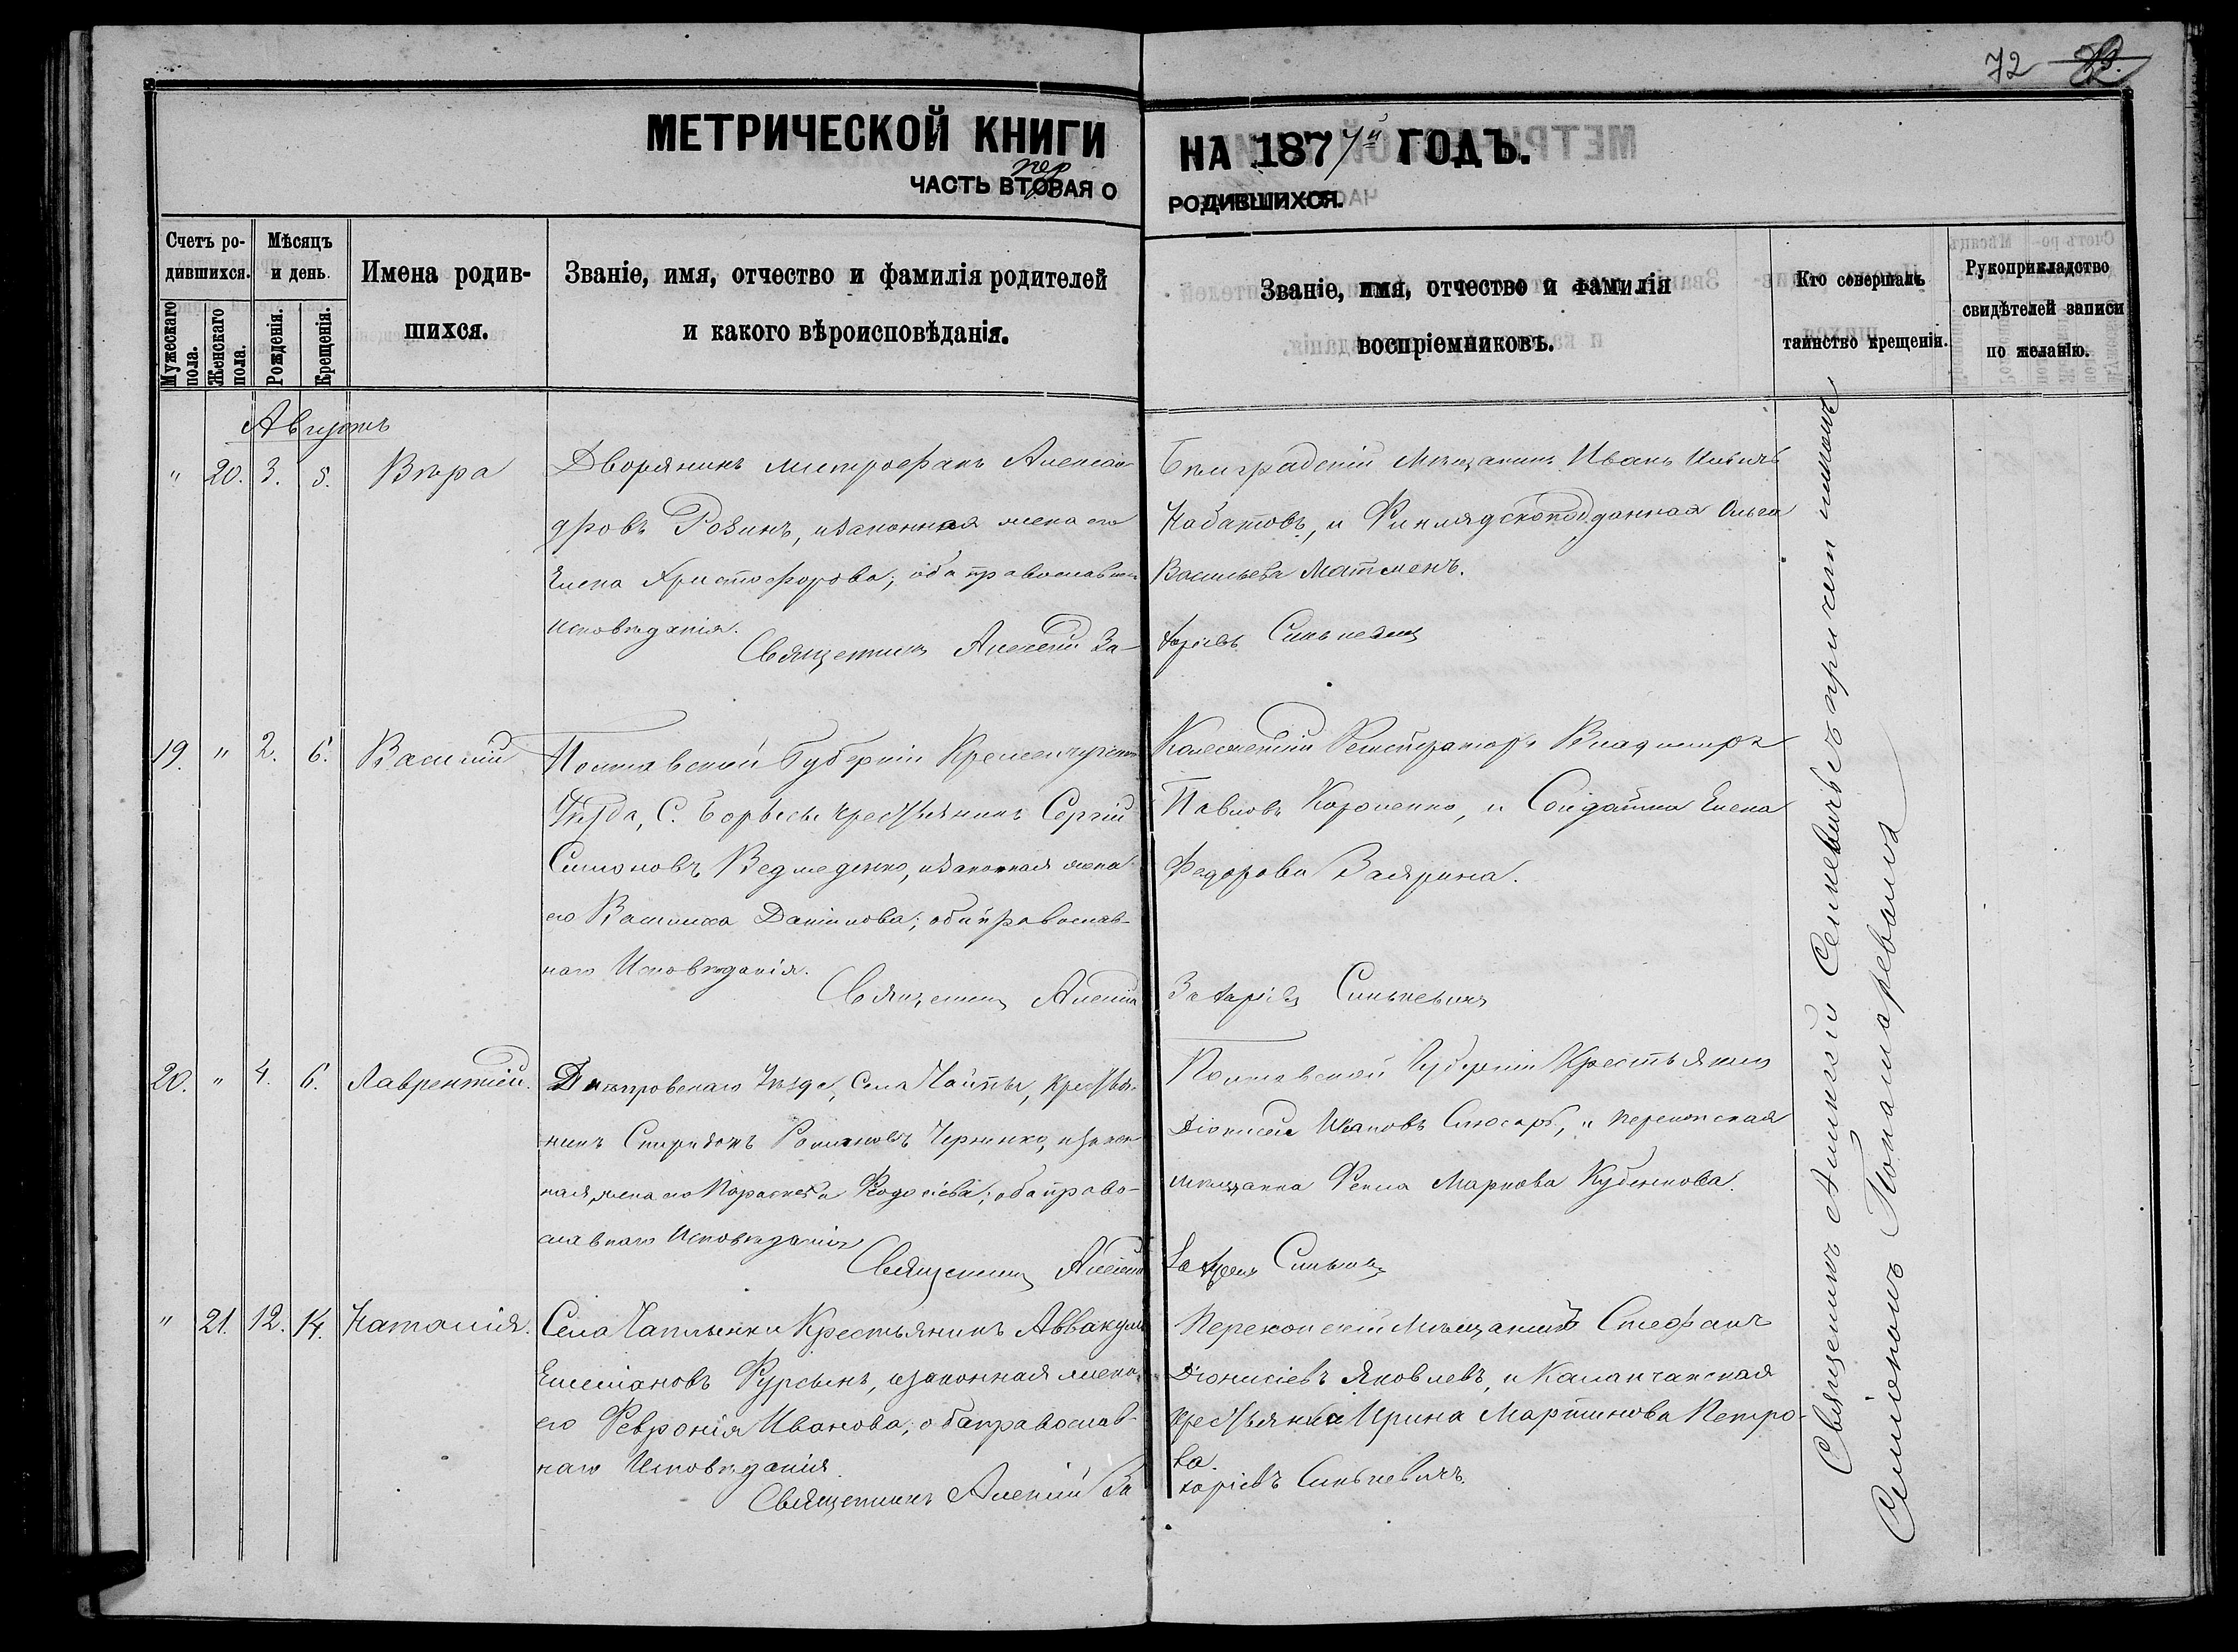 72
МЕТРИЧЕСКОЙ КНИГИ НА 1877й ГОДЪ.
пер
ЧАСТЬ ВТОРАЯ О РОДИВШИХСЯ.
Счетъ ро-
дившихся.
Мужескаго пола.
Женскаго пола.
Мѣсяцъ
и день.
Рожденія.
Крещенія.
Имена родив-
шихся.
Званіе, имя, отчество и фамилія родителей
и какого вѣроисповѣданія.
Званіе, имя, отчество и фамилія
воспріемниковъ.
Кто совершалъ
таинство крещенія.
Рукоприкладство
свидѣтелей записи
по желанію.
Августъ
" 20. 3. 5. Вѣра
Дворянинъ Митрофанъ Алексан-
дровъ Розинъ, и законная жена его
Елена Христофорова; оба православнаго
исповѣданія.
Священникъ Алексій За-
Иванъ
и Финляндскоподданная Ольга
Васильева
харіевъ Синькевичъ
19. " 2. 6. Василій
Полтавской Губерніи Кременчугскаго
Уѣзда, С. крестьянинъ Сергій
Симоновъ Ведмеденко, и законная жена
его Василиса Данилова; оба православ-
наго Исповѣданія.
Священникъ Алексій
Коллежскій Регистраторъ Владиміръ
Павловъ Короленко, и Солдатка Елена
Федорова
Захаріевъ Синькевичъ
20. " 4. 6. Лаврентій.
Днѣпровскаго Уѣзда, Села крестья-
нинъ Спиридонъ Романовъ и закон-
ная жена его Параскева Феодосіева; оба право-
славнаго Исповѣданія
Священникъ Алексій
Полтавской Губерніи Крестьянинъ
Діонисій Ивановъ Слюсарь, и Перекопская
мѣщанка Фекла Маркова Кубенкова.
Захаріевъ Синькевичъ
" 21. 12. 14. Наталія.
Села Чаплынки Крестьянинъ Аввакумъ
Емеліановъ Фурсынъ, и законная жена
его Февронія Иванова; оба православ-
наго Исповѣданія.
Священникъ Алексій За
Перекопскій Мѣщанинъ Стефанъ
Діонисіевъ Яковлевъ, и Каланчакская
крестьянка Ирина Мартинова Петро-
ва.
харіевъ Синькевичъ.
Священникъ Алексій Синькевичъ съ причетникомъ
Симіономъ Пономаревымъ